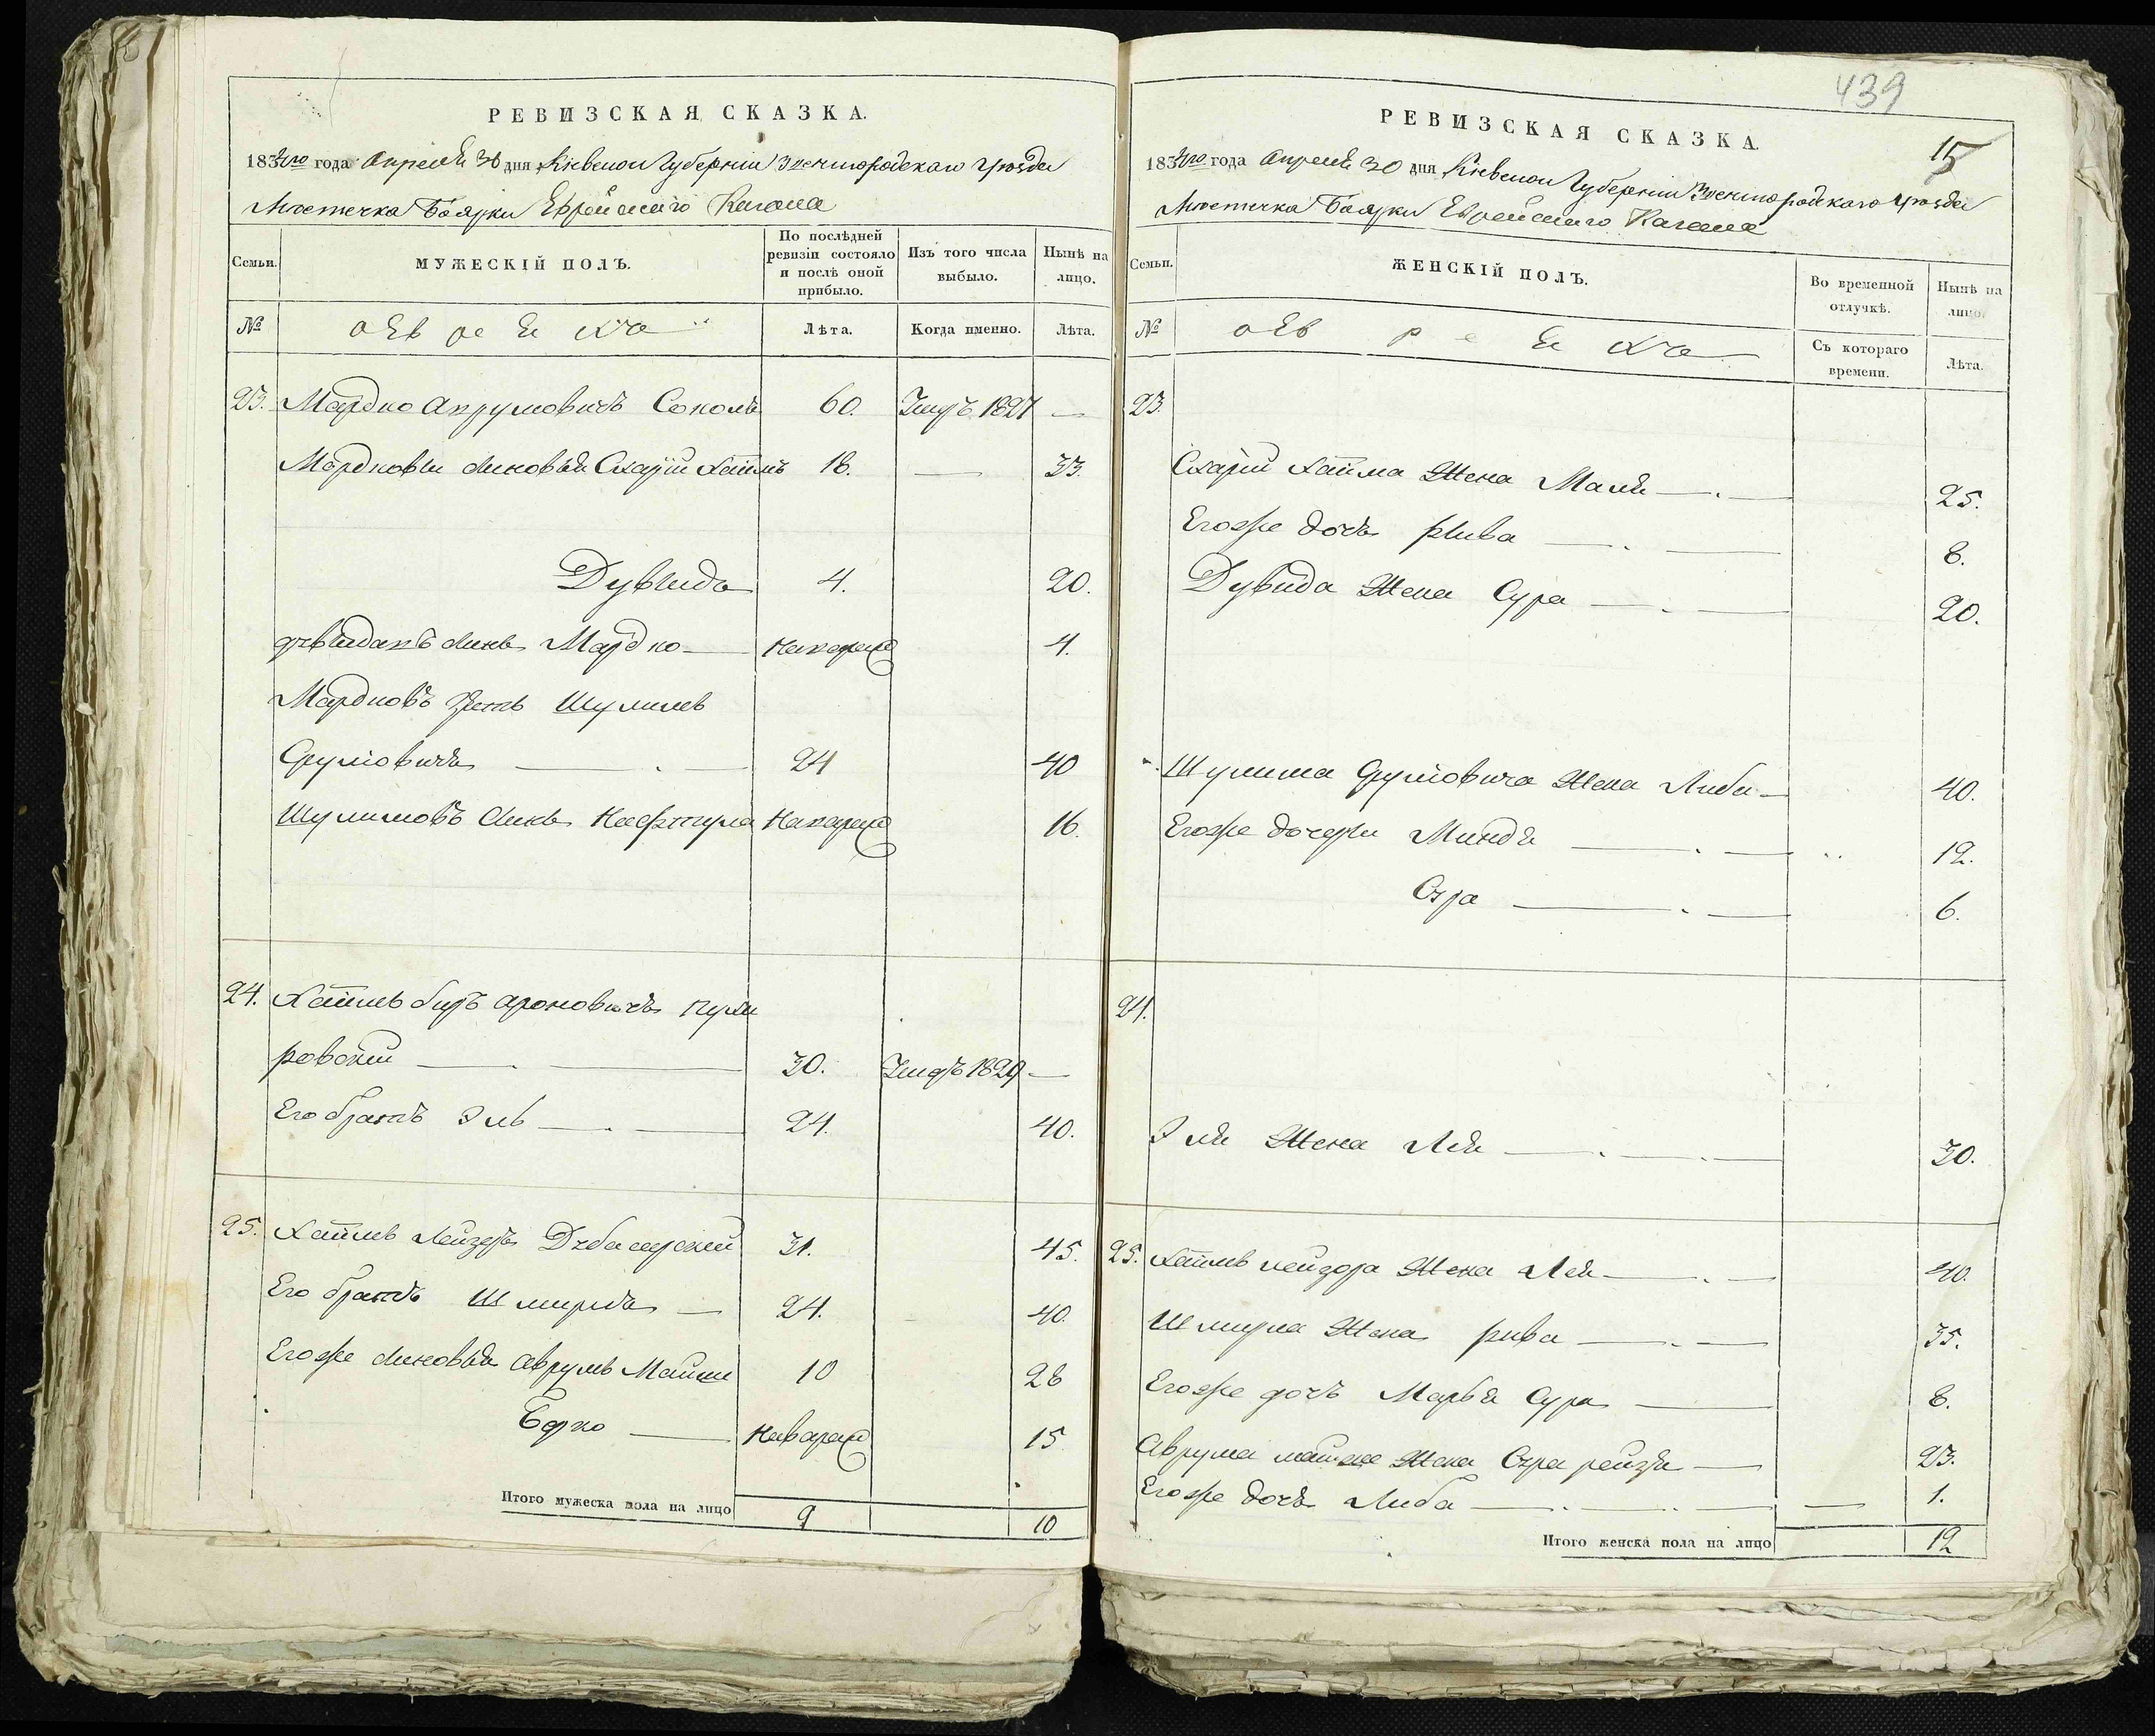 РЕВИЗСКАЯ СКАЗКА.
1834го года Апреля 30 дня Киевской Губернии Звенигородскаго уѣзда
Местечка Боярки Еврейскаго Кагала
Семьи.
МУЖЕСКІЙ ПОЛЪ.
По послѣдней ревизіи состояло и послѣ оной прибыло.
Изъ того числа выбыло.
Нынѣ на лицо.
№
Евреи
Лѣта.
Когда именно.
Лѣта.
23. Мардко Аврумовичъ Соколъ 60. Умеръ 1827 —
Мордковы сыновья Старій Хаимъ 18. — 33.
Дувидъ 4. 20.
Дувидовъ сынъ Мардко — 4.
Мардковъ зять Шулимъ
Срулiовичъ — 24 40
Шулимовъ сынъ Нафтула 16.
24. Хаимъ Беръ Ароновичъ
ровскiй — 30. Умеръ 1829 —
Его братъ Эль — 24. 40.
25. Хаимъ Лейзеръ 31. 45.
Его братъ Шмиръ — 24. 40.
Егоже сыновья Аврумъ Майше 10 28
Ефко — 15
Итого мужеска пола на лицо 9 10
439
РЕВИЗСКАЯ СКАЗКА.
15
1834го года Апреля 30 дня Киевской Губернии Звенигородскаго уѣзда
Местечка Боярки Еврейскаго Кагала
Семьи.
ЖЕНСКІЙ ПОЛЪ.
Во временной отлучкѣ.
Нынѣ на лицо.
№
Евреи
Съ котораго времени.
Лѣта.
23.
Старій Хаима жена Маля — 25.
Егоже дочь Рива — 8.
Дувида жена Сура — 20.
Шулима Срулiовича жена Либа — 40.
Егоже дочери Миндя — 12.
Сура — 6.
24.
Эля жена Лея — 30.
25. Хаимъ Лейзора жена Лея — 40.
Шмира жена Рива — 35.
Егоже дочь Марья Сура — 8.
Аврума Майше жена Сура Рейзя — 23.
Егоже дочь Либа — 1.
Итого женска пола на лицо 12